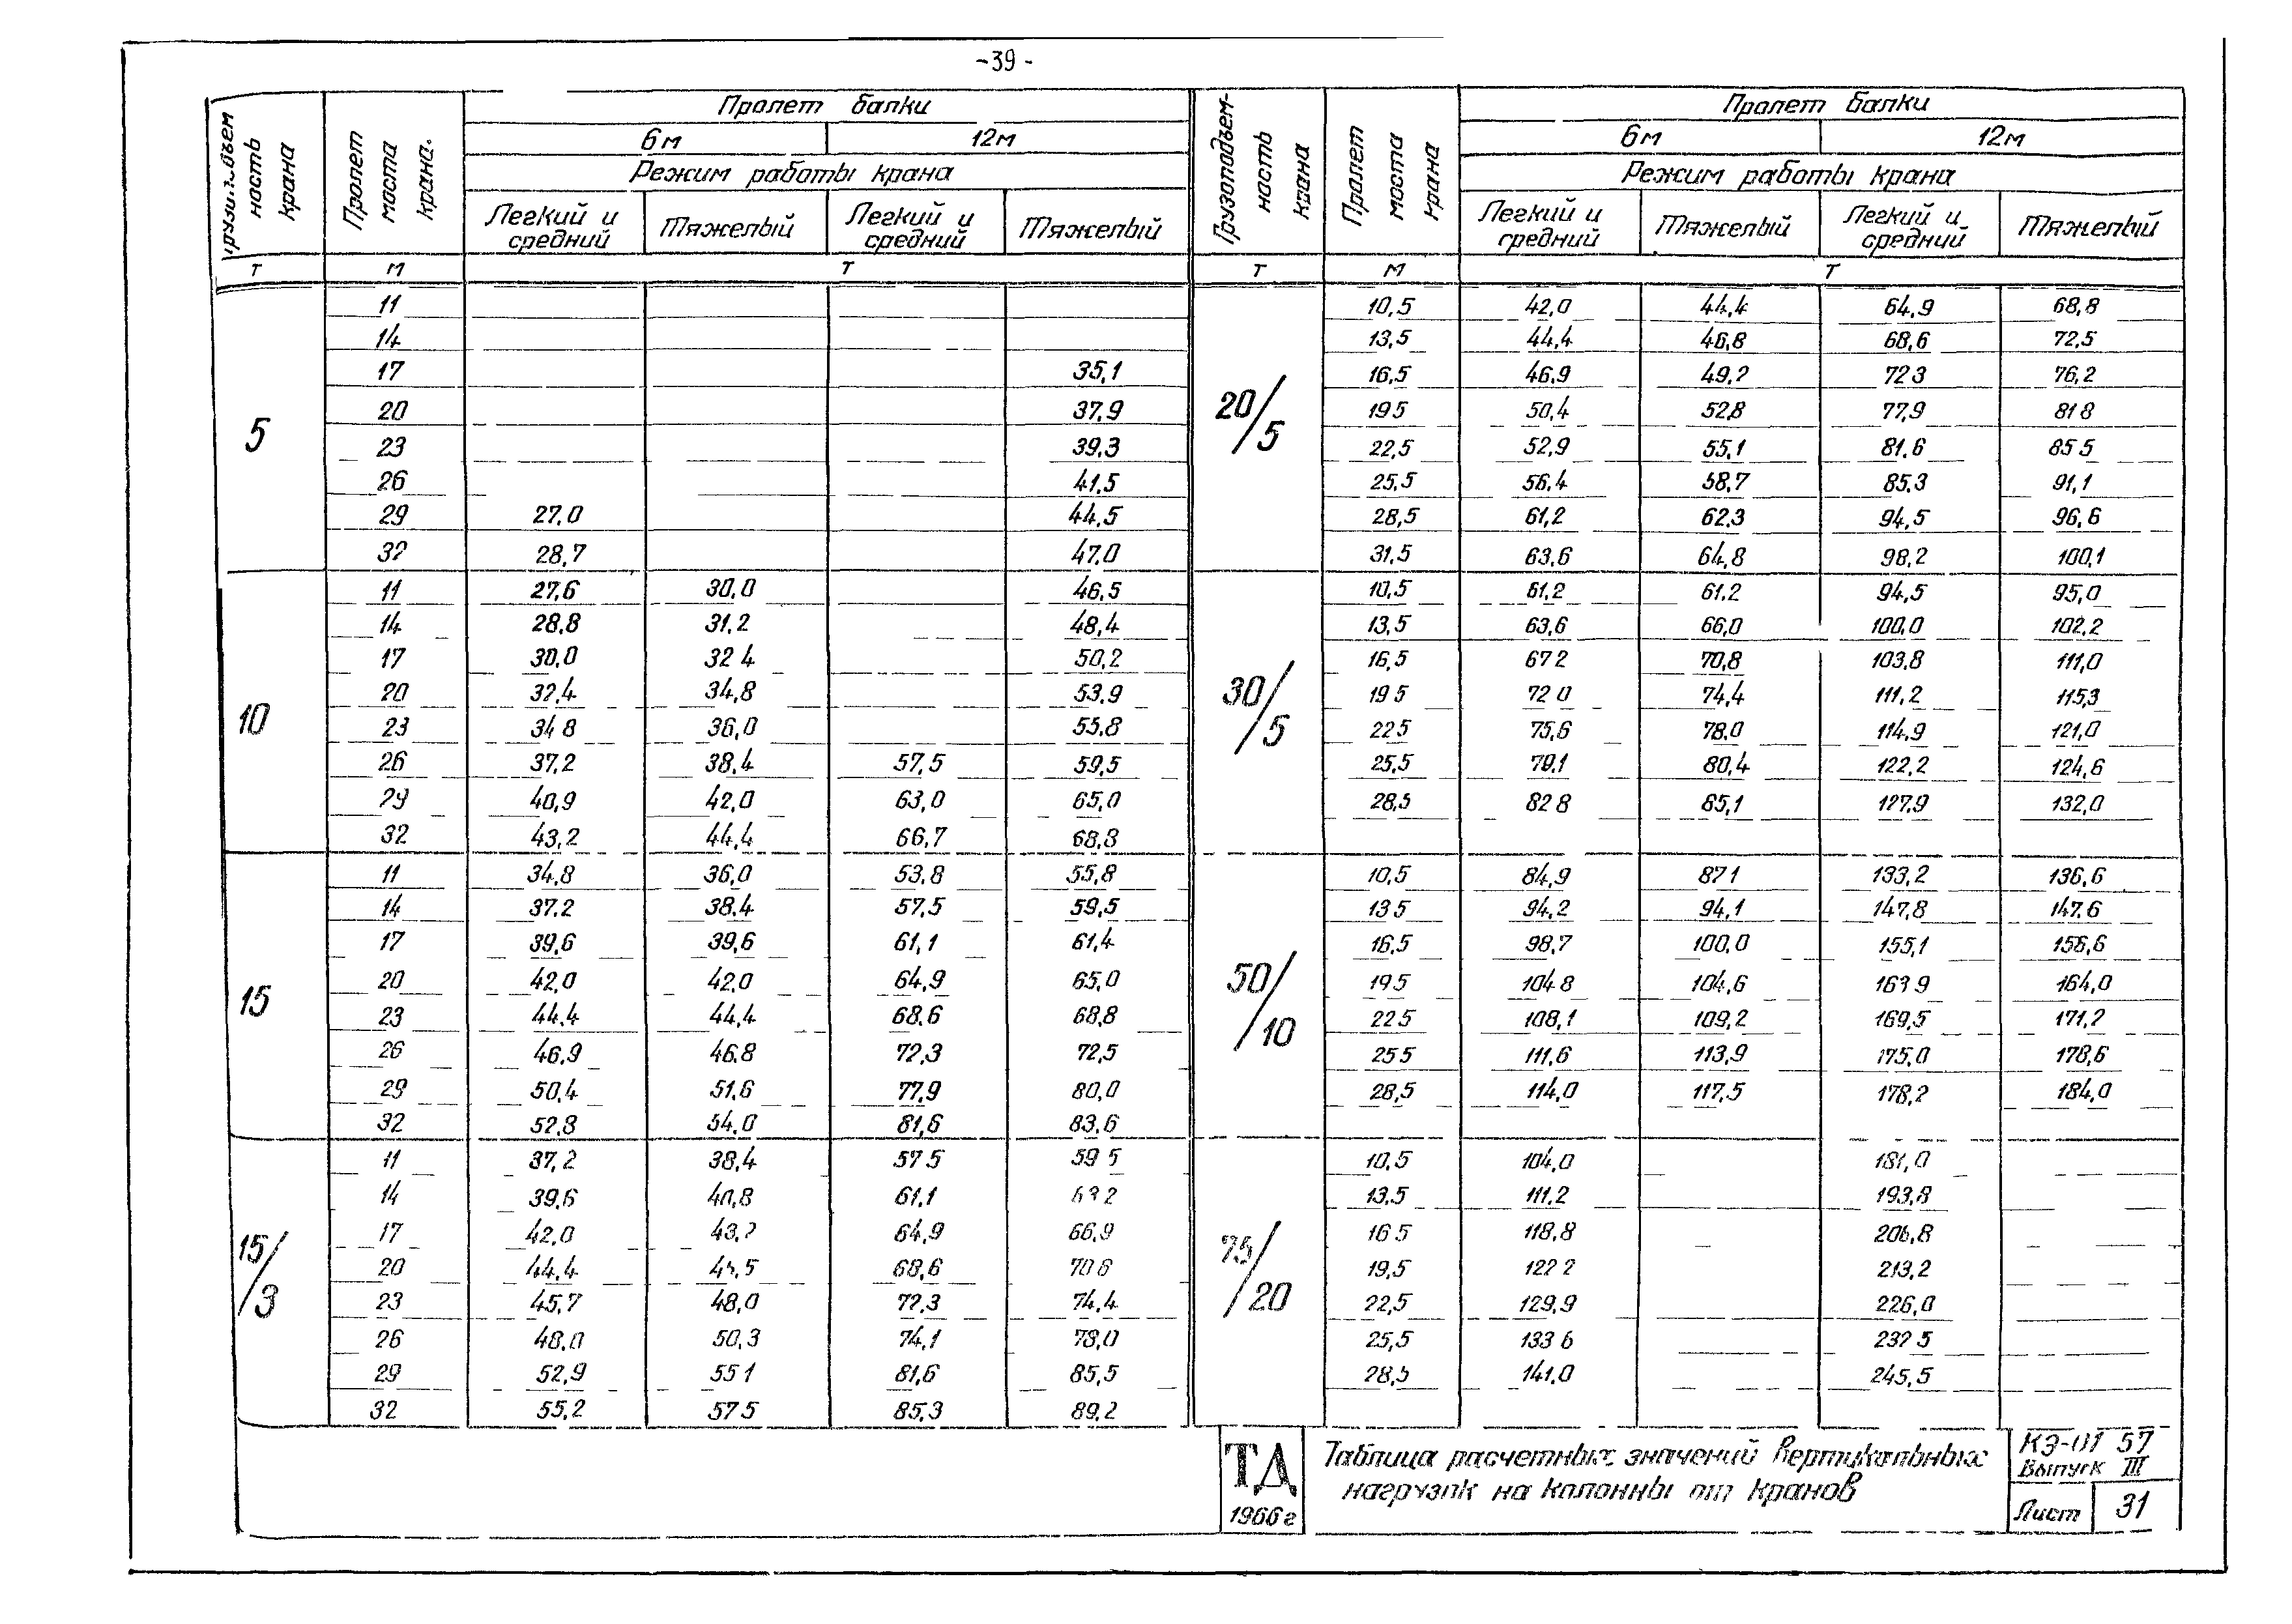 -39-
Грузоподъем ность крана
Пролет моста крана.
Пролет балки
6м 12м
Режим работы крана
Легкий и средний Тяжелый Легкий и средний Тяжелый
т м т
5
11
14
17 35,1
20 37,9
23 39,3
26 41,5
29 27,0 44,5
32 28,7 47,0
10
11 27,6 30,0 46,5
14 28,8 31,2 48,4
17 30,0 32 4 50,2
20 32,4 34,8 53,9
23 34 8 36,0 55,8
26 37,2 38,4 57,5 59,5
29 40,9 42,0 63,0 65,0
32 43,2 44,4 66,7 68,8
15
11 34,8 36,0 53,8 55,8
14 37,2 38,4 57,5 59,5
17 39,6 39,6 61,1 61,4
20 42,0 42,0 64,9 65,0
23 44,4 44,4 68,6 68,8
26 46,9 46,8 72,3 72,5
29 50,4 51,6 77,9 80,0
32 52,8 54,0 81,6 83,6
15/3
11 37,2 38,4 57 5 59 5
14 39,6 40,8 61,1 63 2
17 42,0 43,2 64,9 66,9
20 44,4 45,5 68,6 70 6
23 45,7 48,0 72,3 74,4
26 48,0 50,3 74,1 78,0
29 52,9 55 1 81,6 85,5
32 55,2 57 5 85,3 89,2
Грузоподъем- ность крана
Пролет моста крана
Пролет балки
6м 12м
Режим работы крана
Легкий и средний Тяжелый Легкий и средний Тяжелый
т м т
20/5
10,5 42,0 44,4 64,9 68,8
13,5 44,4 46,8 68,6 72,5
16,5 46,9 49,2 72 3 76,2
19 5 50,4 52,8 77,9 81 8
22,5 52,9 55,1 81,6 85 5
25,5 56,4 58,7 85,3 91,1
28,5 61,2 62,3 94,5 96,6
31,5 63,6 64,8 98,2 100,1
30/5
10,5 61,2 61,2 94,5 95,0
13,5 63,6 66,0 100,0 102,2
16,5 67 2 70,8 103,8 111,0
19 5 72 0 74,4 111,2 115,3
22 5 75,6 78,0 114,9 121,0
25,5 79,1 80,4 122,2 124,6
28,5 82 8 85,1 127,9 132,0
50/10
10,5 84,9 87 1 133,2 136,6
13 5 94,2 94,1 147,8 147,6
16,5 98,7 100,0 155,1 156,6
19 5 104 8 104,6 163 9 164,0
22 5 108,1 109,2 169,5 171,2
25 5 111,6 113,9 175,0 178,6
28,5 114,0 117,5 178,2 184,0
75/20
10,5 104,0 181,0
13,5 111,2 193,8
16 5 118,8 206,8
19,5 122 2 213,2
22,5 129,9 226,0
25,5 133 6 232 5
28,5 141,0 245,5
ТД
1966 г
Таблица расчетных значений вертикальных
нагрузок на колонны от кранов
КЭ-01 57
Выпуск III
Лист 31